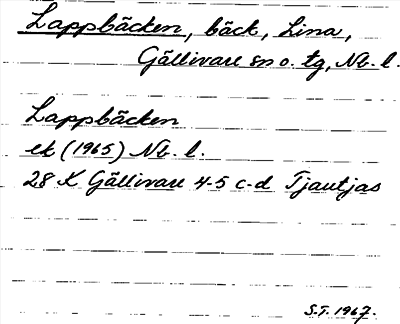 Lappbäcken, bäck, Lina,
Gällivare sn o. tg, Nb. l.
Lappbäcken
ek (1965) Nb. l.
28 K Gällivare 4-5 c-d Tjautjas
S.T. 1967.